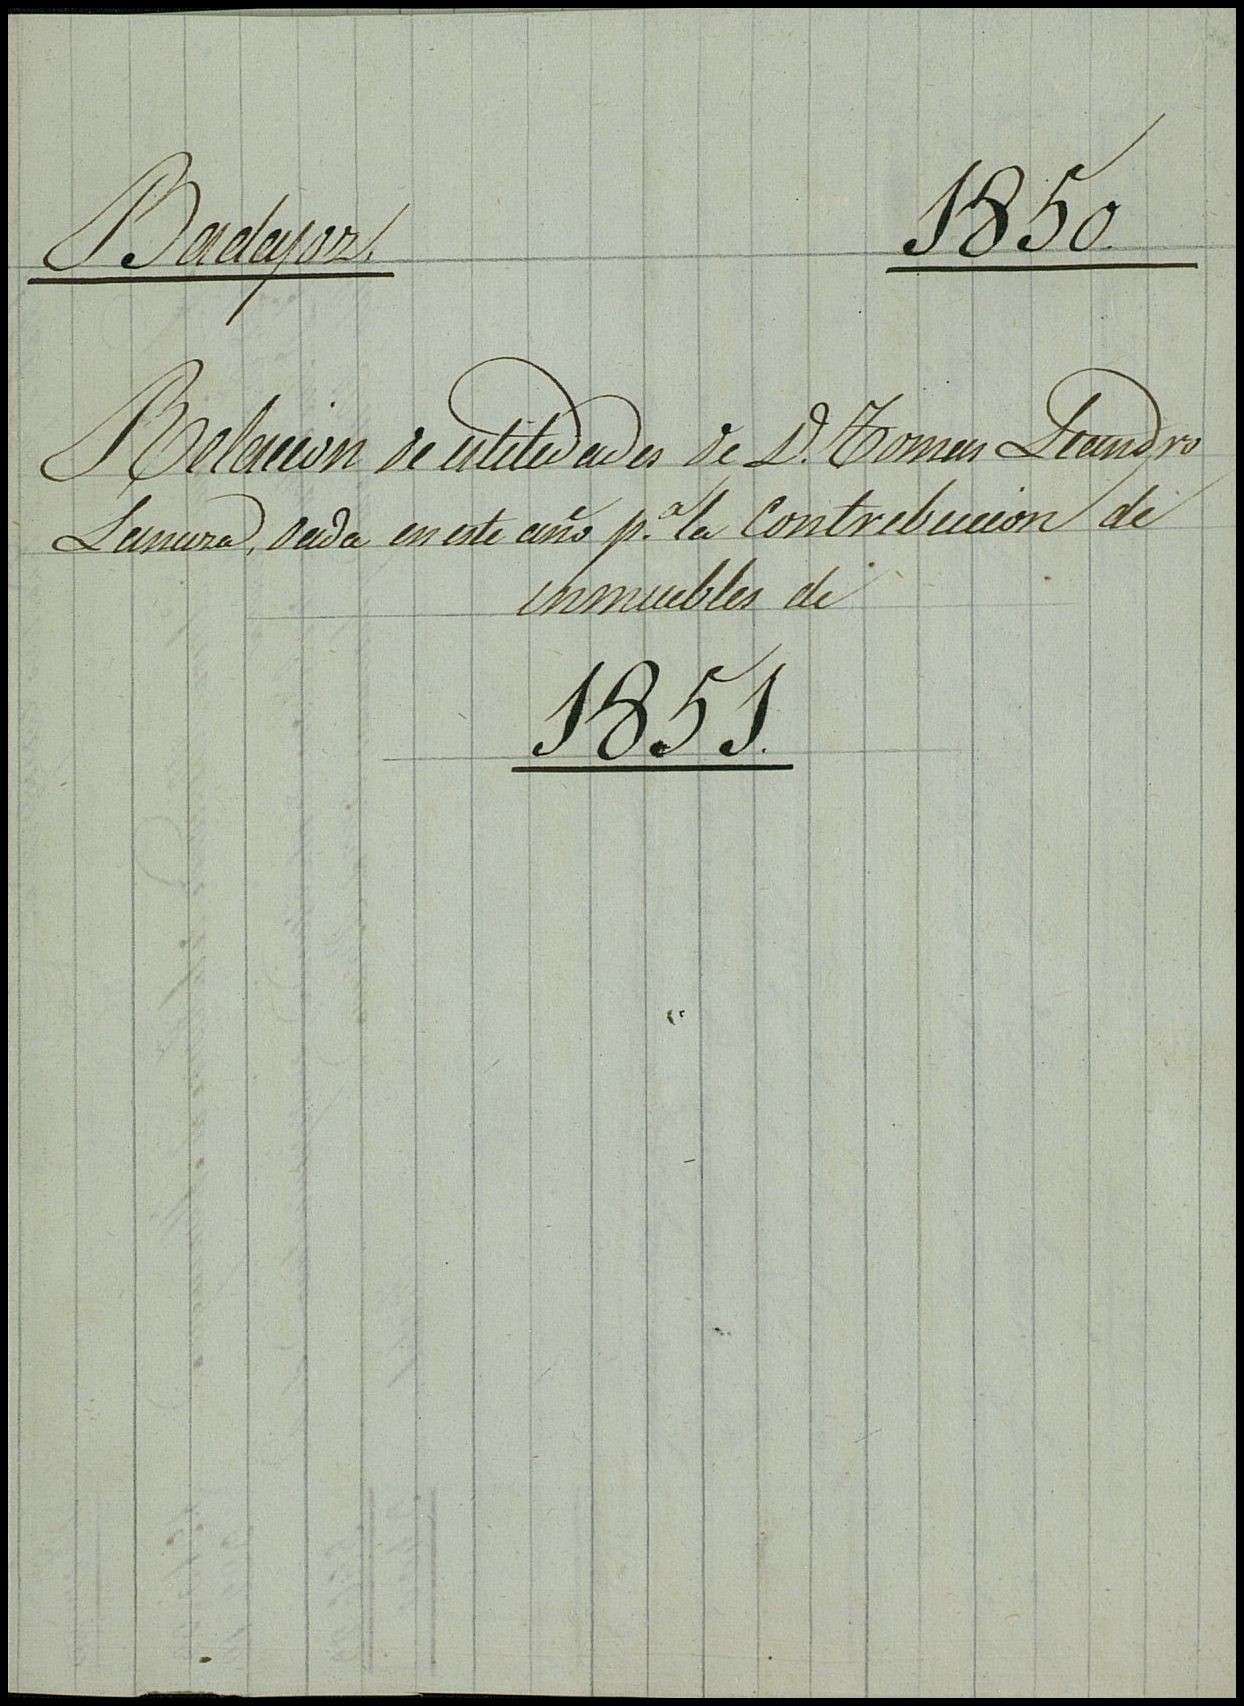 Badajoz.
1850.
Relacion de utilidades de D. Tomas Leandro
Lanuza, dada en este año p.ª la Contribucion de
inmuebles de
1851.